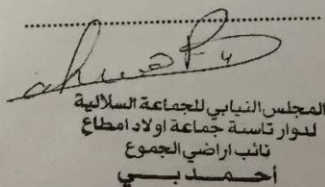 المجلس النيابي للجماعة السلالية
لدوار تاسنة جماعة اولاد امطاع
نائب اراضي الجموع
أحمد بي